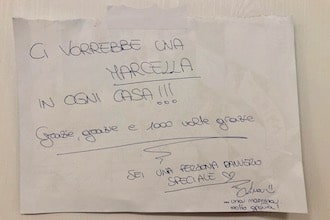 CI VORREBBE UNA
MARCELLA
IN OGNI CASA!!!
Grazie, grazie e 1000 volte grazie
SEI UNA PERSONA DAVVERO
SPECIALE ♡
una mamma